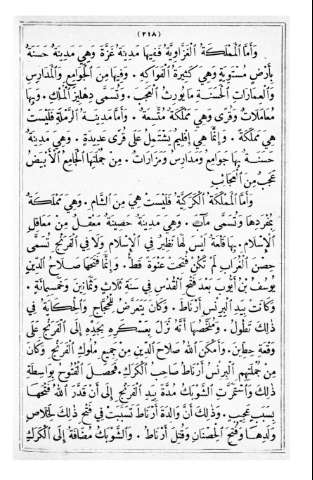 (٢١٨)
وَأَمَّا ٱلْمَمْلَكَةُ ٱلْغَزَّاوِيَّةُ فَفِيهَا مَدِينَةُ غَزَّةَ وَهِيَ مَدِينَةٌ حَسَنَةٌ
بِأَرْضٍ مُسْتَوِيَةٍ وَهِيَ كَثِيرَةُ ٱلْفَوَاكِهِ . وَفِيهَا مِنَ ٱلْجَوَامِعِ وَٱلْمَدَارِسِ
وَٱلْعِمَارَاتِ ٱلْحَسَنَةِ مَا يُورِثُ ٱلْعَجَبَ . وَتُسَمَّى دِهْلِيزَ ٱلْمُلْكِ . وَبِهَا
مُعَامَلَاتٌ وَقُرًى وَهِيَ مَمْلَكَةٌ مُتَّسِعَةٌ . وَأَمَّا مَدِينَةُ ٱلرَّمْلَةِ فَلَيْسَتْ
هِيَ مَمْلَكَةً . وَإِنَّمَا هِيَ إِقْلِيمٌ يَشْتَمِلُ عَلَى قُرًى عَدِيدَةٍ . وَهِيَ مَدِينَةٌ
حَسَنَةٌ بِهَا جَوَامِعُ وَمَدَارِسُ وَمَزَارَاتٌ . مِنْ جُمْلَتِهَا ٱلْجَامِعُ ٱلْأَبْيَضُ
عَجَبٌ مِنَ ٱلْعَجَائِبِ
وَأَمَّا ٱلْمَمْلَكَةُ ٱلْكَرَكِيَّةُ فَلَيْسَتْ هِيَ مِنَ ٱلشَّامِ . وَهِيَ مَمْلَكَةٌ
بِمُفْرَدِهَا وَتُسَمَّى مَآبَ . وَهِيَ مَدِينَةٌ حَصِينَةٌ مَعْقِلٌ مِنْ مَعَاقِلِ
ٱلْإِسْلَامِ . بِهَا قَلْعَةٌ لَيْسَ لَهَا نَظِيرٌ فِي ٱلْإِسْلَامِ وَلَا فِي ٱلْفَرَنْجِ تُسَمَّى
حِصْنَ ٱلْغُرَابِ لَمْ تَكُنْ فُتِحَتْ عَنْوَةً قَطُّ . وَإِنَّمَا فَتَحَهَا صَلَاحُ ٱلدِّينِ
يُوسُفُ بْنُ أَيُّوبَ بَعْدَ فَتْحِ ٱلْقُدْسِ فِي سَنَةِ ثَلَاثٍ وَثَمَانِينَ وَخَمْسِمِائَةٍ .
وَكَانَتْ بِيَدِ ٱلْبِرِنْسِ أَرْنَاطَ . وَكَانَ يَتَعَرَّضُ لِلْحُجَّاجِ وَٱلْحِكَايَةُ فِي
ذٰلِكَ تَطُولُ . وَمُلَخَّصُهَا أَنَّهُ نَزَلَ بِعَسْكَرِهِ نَجْدَةً إِلَى ٱلْفَرَنْجِ عَلَى
وَقْعَةِ حِطِّينَ . وَأَمْكَنَ ٱللهُ صَلَاحَ ٱلدِّينِ مِنْ جَمِيعِ مُلُوكِ ٱلْفَرَنْجِ وَكَانَ
مِنْ جُمْلَتِهِمِ ٱلْبِرِنْسُ أَرْنَاطُ صَاحِبُ ٱلْكَرَكِ . فَحَصَلَ ٱلْفُتُوحُ بِوَاسِطَةِ
ذٰلِكَ وَٱسْتَمَرَّتِ ٱلشَّوْبَكُ مُدَّةً بِيَدِ ٱلْفَرَنْجِ إِلَى أَنْ قَدَّرَ ٱللهُ فَتْحَهَا
بِسَبَبٍ عَجِيبٍ . وَذٰلِكَ أَنَّ وَالِدَةَ أَرْنَاطَ تَسَبَّبَتْ فِي فَتْحِ ذٰلِكَ لِخَلَاصِ
وَلَدِهَا وَفُتِحَ ٱلْحِصْنَانِ وَقُتِلَ أَرْنَاطُ . وَٱلشَّوْبَكُ مُضَافَةٌ إِلَى ٱلْكَرَكِ